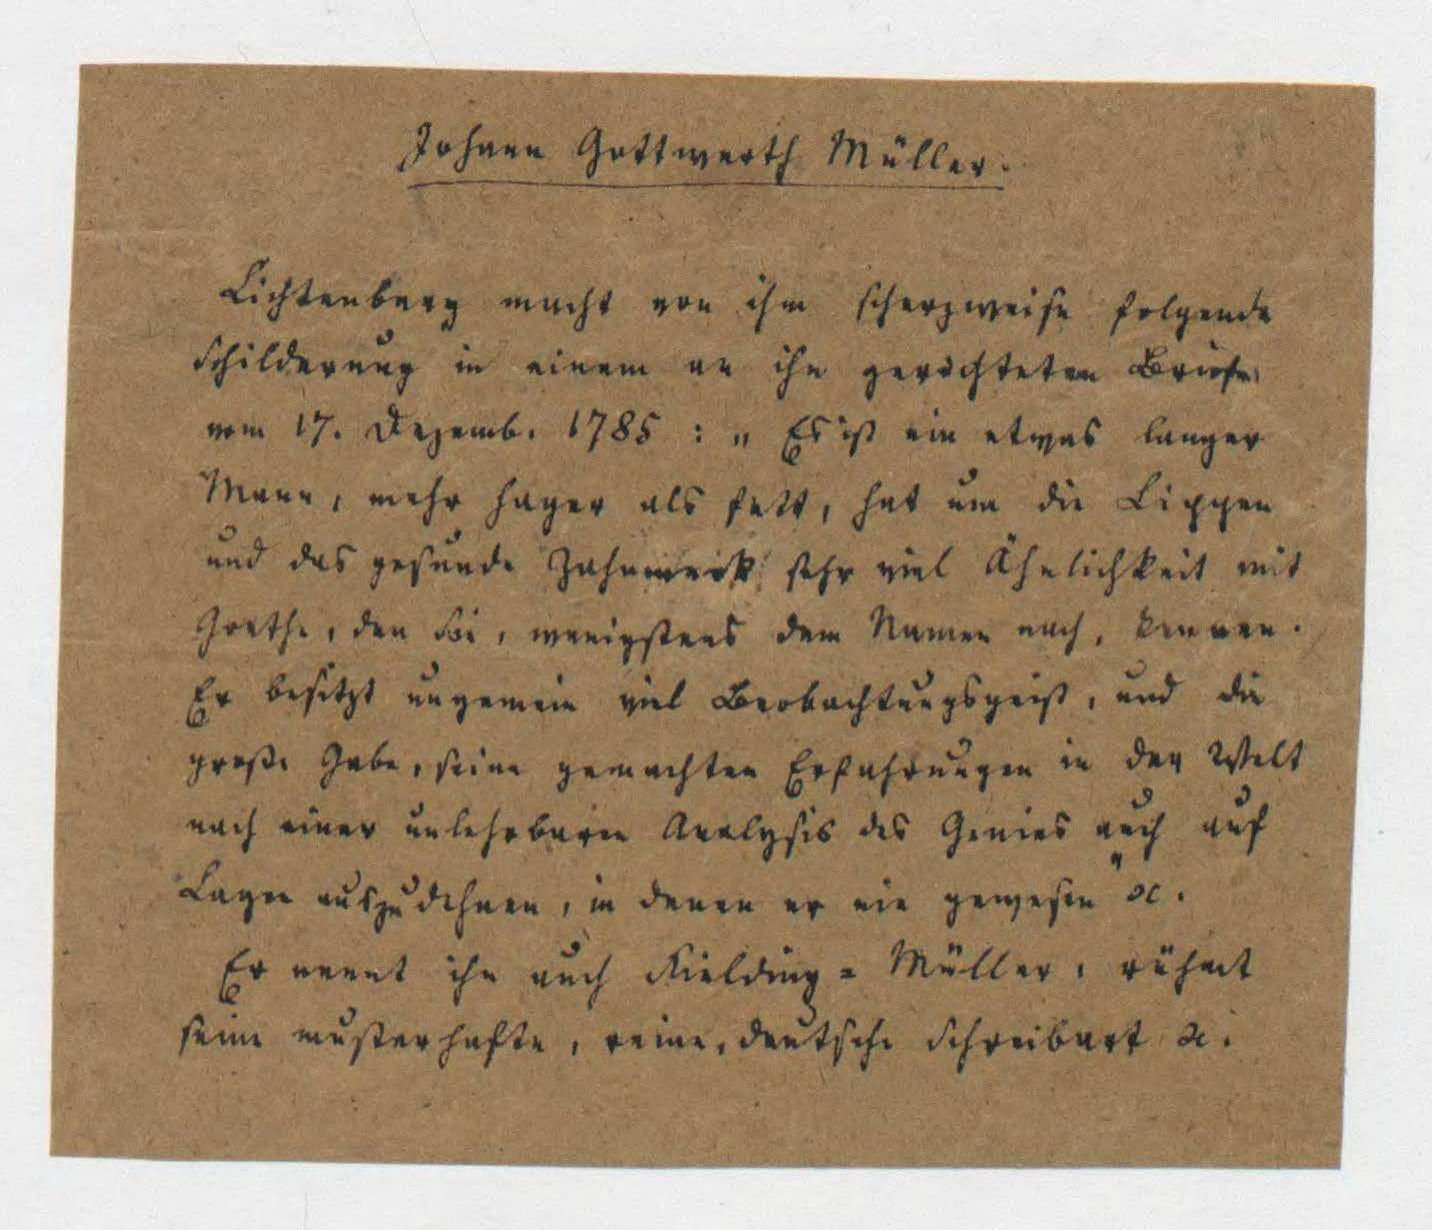 Johann Gottwerth Müller.
Lichtenberg macht von ihm scherzweise folgende
Schilderung in einem an ihn gerichteten Briefe
vom 17. Dezemb. 1785 : „ Es ist ein etwas langer
Mann, mehr hager als fett, hat um die Lippen
und das gesunde Zahnwerk sehr viel Ähnlichkeit mit
Goethe, den Sie, wenigstens dem Namen nach, kennen.
Er besitzt ungemein viel Beobachtungsgeist, und die
große Gabe, seine gemachten Erfahrungen in der Welt
nach einer unlehrbaren Analysis des Genies auch auf
Lagen auszudehnen, in denen er nie gewesen " ꝛc.
Er nennt ihn auch Fielding = Müller, rühmt
seine musterhafte, reine, deutsche Schreibart ꝛc.